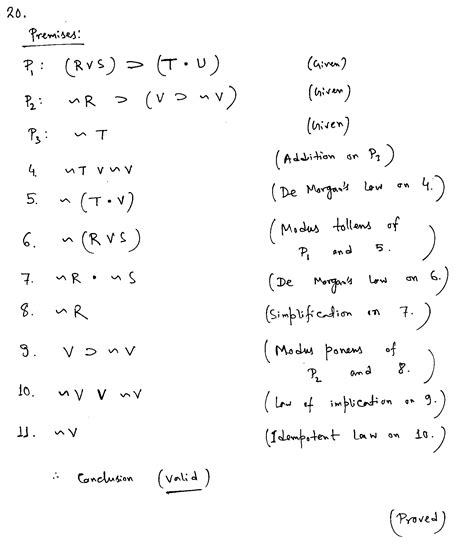 20.
Premises:
P₁: (R∨S) ⊃ (T • U) (Given)
P₂: ~R ⊃ (V ⊃ ~V) (Given)
P₃: ~T (Given)
4. ~T ∨ ~V (Addition on P₃)
5. ~(T • V) (De Morgan's Law on 4.)
6. ~(R∨S) (Modus tollens of P₁ and 5.)
7. ~R • ~S (De Morgan's Law on 6.)
8. ~R (Simplification on 7.)
9. V ⊃ ~V (Modus ponens of P₂ and 8.)
10. ~V ∨ ~V (Law of implication on 9.)
11. ~V (Idempotent Law on 10.)
∴ Conclusion (Valid)
(Proved)